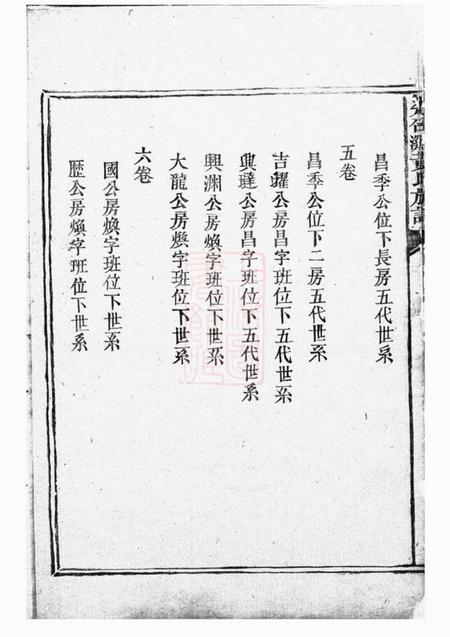 昌季公位下長房五代世系
五卷
昌季公位下二房五代世系
吉躍公房昌字班位下五代世系
興璉公房昌字班位下五代世系
興渊公房煥字班位下世系
大龍公房煥字班位下世系
六卷
國公房煥字班位下世系
歷公房煥字班位下世系